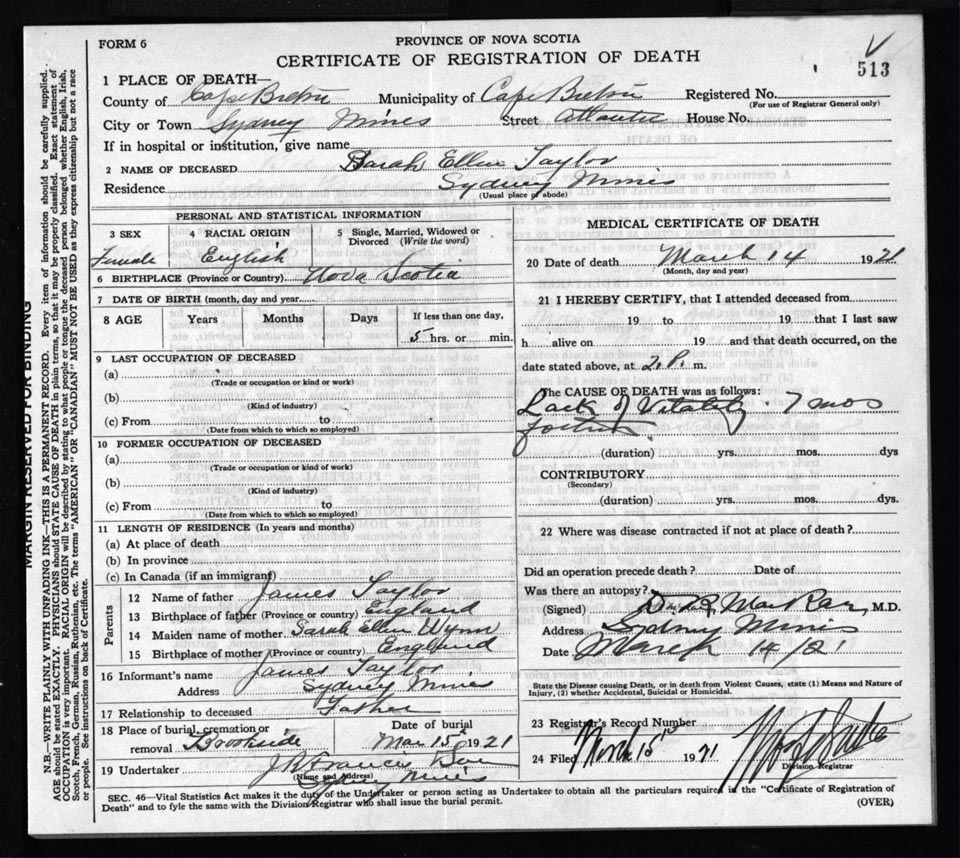 FORM 6
PROVINCE OF NOVA SCOTIA
CERTIFICATE OF REGISTRATION OF DEATH
513
1 PLACE OF DEATH—
County of Cape Breton Municipality of Cape Breton Registered No.
(For use of Registrar General only)
City or Town Sydney Mines Street Atlantic House No.
If in hospital or institution, give name
2 NAME OF DECEASED Sarah Ellen Taylor
Residence Sydney Mines
(Usual place of abode)
PERSONAL AND STATISTICAL INFORMATION
3 SEX 4 RACIAL ORIGIN 5 Single, Married, Widowed or Divorced (Write the word)
Female English
6 BIRTHPLACE (Province or Country) Nova Scotia
7 DATE OF BIRTH (month, day and year)
8 AGE Years Months Days If less than one day,
5 hrs. or min.
9 LAST OCCUPATION OF DECEASED
(a)
(Trade or occupation or kind or work)
(b)
(Kind of industry)
(c) From to
(Date from which to which so employed)
10 FORMER OCCUPATION OF DECEASED
(a)
(Trade or occupation or kind of work)
(b)
(Kind of industry)
(c) From to
(Date from which to which so employed)
11 LENGTH OF RESIDENCE (In years and months)
(a) At place of death
(b) In province
(c) In Canada (if an immigrant)
Parents
12 Name of father James Taylor
13 Birthplace of father (Province or country) England
14 Maiden name of mother Sarah Ellen Wynn
15 Birthplace of mother (Province or country) England
16 Informant's name James Taylor
Address Sydney Mines
17 Relationship to deceased Father
18 Place of burial, cremation or removal Brookside Date of burial Mar 15th 1921
19 Undertaker
(Name and Address)
Sydney Mines
MEDICAL CERTIFICATE OF DEATH
20 Date of death March 14 1921
(Month, day and year)
21 I HEREBY CERTIFY, that I attended deceased from
19 to 19 that I last saw
h alive on 19 and that death occurred, on the
date stated above, at 2 P. m.
The CAUSE OF DEATH was as follows:
Lack of Vitality. 7 mos
(duration) yrs. mos. dys
CONTRIBUTORY
(Secondary)
(duration) yrs. mos. dys.
22 Where was disease contracted if not at place of death?
Did an operation precede death? Date of
Was there an autopsy?
(Signed) MacRae, M.D.
Address Sydney Mines
Date March 14/21
State the Disease causing Death, or in death from Violent Causes, state (1) Means and Nature of
Injury, (2) whether Accidental, Suicidal or Homicidal.
23 Registrar's Record Number
24 Filed March 15th 1921
Division Registrar
SEC. 46—Vital Statistics Act makes it the duty of the Undertaker or person acting as Undertaker to obtain all the particulars required in the "Certificate of Registration of
Death" and to fyle the same with the Division Registrar who shall issue the burial permit.
(OVER)
MARGIN RESERVED FOR BINDING
N.B.—WRITE PLAINLY WITH UNFADING INK—THIS IS A PERMANENT RECORD. Every item of information should be carefully supplied.
AGE should be stated EXACTLY. PHYSICIANS should STATE CAUSE OF DEATH in plain terms, so that it may be properly classified. Exact statement of
OCCUPATION is very important. RACIAL ORIGIN will be described by stating to what people or tongue the deceased person belonged whether English, Irish,
Scotch, French, German, Russian, Ruthenian, etc. The terms "AMERICAN" or "CANADIAN" MUST NOT BE USED as they express citizenship but not a race
or people. See instructions on back of Certificate.